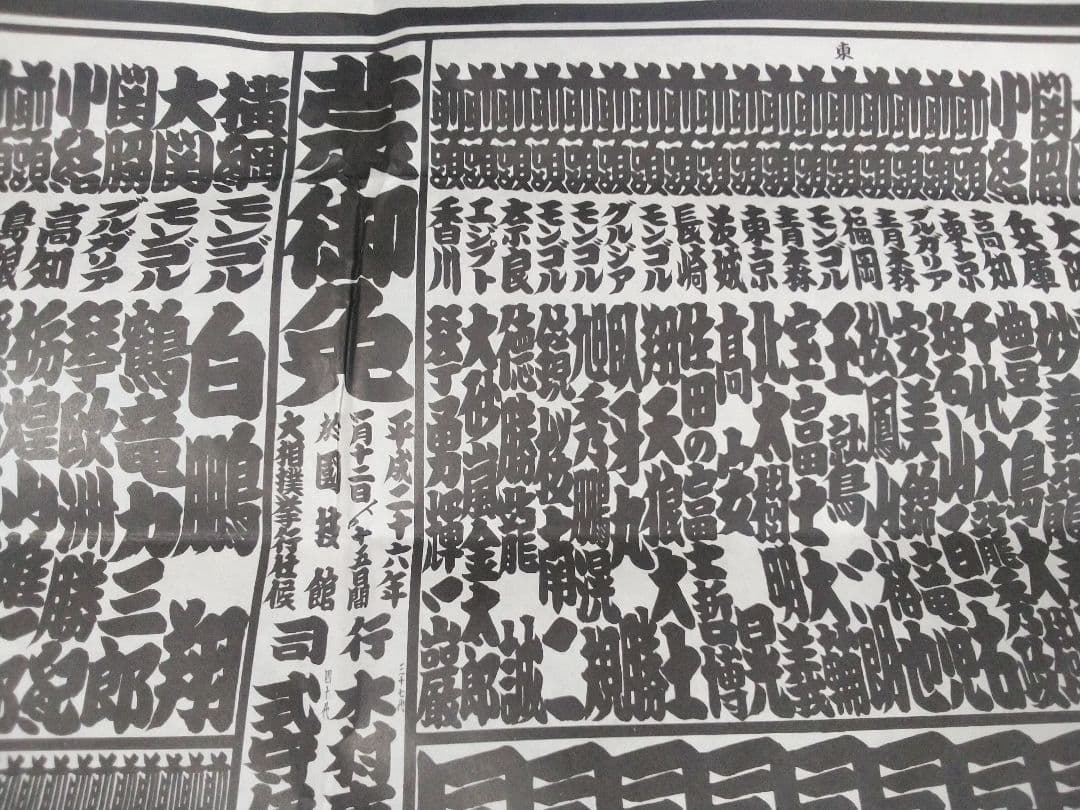 東
関脇
小結 兵庫 妙義龍
前頭 高知 豊ノ島 大樹
前頭 東京 千代大龍 秀政
前頭 ブルガリア 碧山 亘右
前頭 青森 安美錦 竜児
前頭 福岡 松鳳山 裕也
前頭 モンゴル 玉鷲 一朗
前頭 青森 宝富士 大輔
前頭 東京 北太樹 明義
前頭 茨城 高安 晃
前頭 長崎 佐田の富士 哲博
前頭 モンゴル 翔天狼 大士
前頭 グルジア 臥牙丸 勝
前頭 モンゴル 旭秀鵬 滉規
前頭 モンゴル 鏡桜 南二
前頭 奈良 徳勝龍 誠
前頭 エジプト 大砂嵐 金太郎
前頭 香川 琴勇輝 一巖
蒙御免
平成二十六年
一月十二日ヨリ十五日間
於國技館
大相撲挙行仕候
行司
三十七代 木村
四十代 式守
横綱 モンゴル 白鵬 翔
大関 モンゴル 鶴竜 力三郎
関脇 ブルガリア 琴欧洲 勝紀
小結 高知 栃煌山 雄一郎
前頭 島根